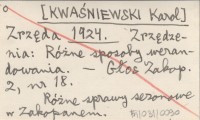 [KWAŚNIEWSKI Karol]
Zrzęda 1924. Zrzędze-
nia: Różne sposoby weran-
dowania. — Głos Zakop.
2, nr 18.
Różne sprawy sezonowe
w Zakopanem.